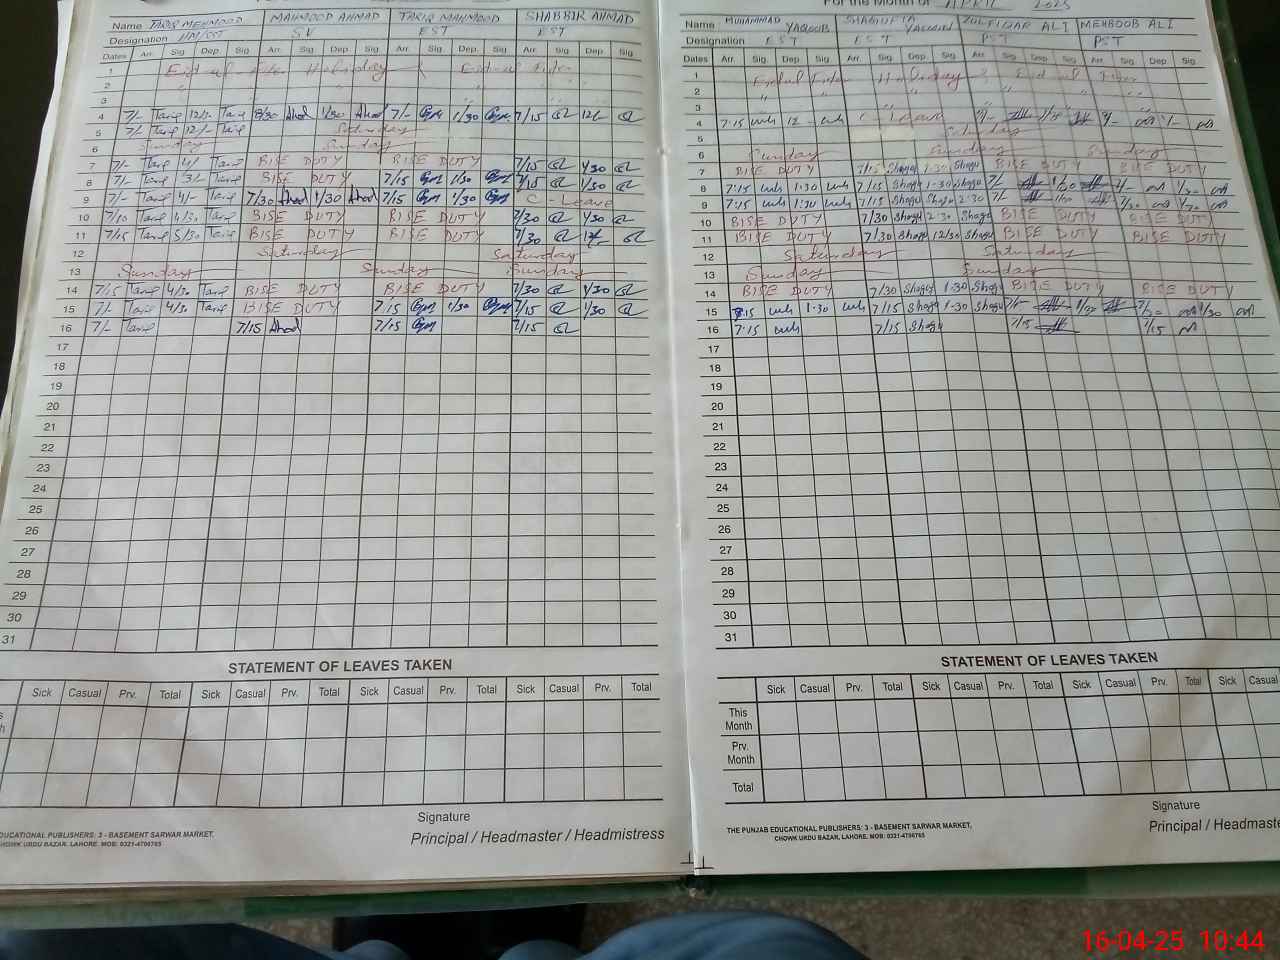 Name TARIQ MEHMOOD MAHMOOD AHMAD TARIQ MAHMOOD SHABBIR AHMAD
Designation HM/SST SV EST EST
Dates Arr. Sig Dep. Sig Arr. Sig. Dep. Sig Arr. Sig. Dep. Sig. Arr. Sig. Dep. Sig.
1 Eid-ul-Fiter Holiday Eid-ul Fiter
2
3
4 7/- Tariq 12/- Tariq 8/30 Ahad 1/30 Ahad 7/- 1/30 7/15 12/-
5 7/- Tariq 12/- Tariq Saturday
6 Sunday Sunday
7 7/- Tariq 4/- Tariq BISE DUTY BISE DUTY 7/15 1/30
8 7/- Tariq 3/- Tariq BISE DUTY 7/15 1/30 7/15 1/30
9 7/- Tariq 4/- Tariq 7/30 Ahad 1/30 Ahad 7/15 1/30 C-Leave
10 7/10 Tariq 4/30 Tariq BISE DUTY BISE DUTY 7/30 1/30
11 7/15 Tariq 5/30 Tariq BISE DUTY BISE DUTY 7/30 12/-
12 Saturday Saturday
13 Sunday Sunday Sunday
14 7/15 Tariq 4/30 Tariq BISE DUTY BISE DUTY 7/30 1/30
15 7/- Tariq 4/30 Tariq BISE DUTY 7:15 1/30 7/15 1/30
16 7/- Tariq 7/15 Ahad 7/15 7/15
17
18
19
20
21
22
23
24
25
26
27
28
29
30
31
STATEMENT OF LEAVES TAKEN
Sick Casual Prv. Total Sick Casual Prv. Total Sick Casual Prv. Total Sick Casual Prv. Total
Signature
Principal / Headmaster / Headmistress
EDUCATIONAL PUBLISHERS: 3 - BASEMENT SARWAR MARKET,
CHOWK URDU BAZAR, LAHORE. MOB: 0321-4706765
For the Month of APRIL 2025
Name MUHAMMAD YAQOOB SHAGUFTA YASMEEN ZULFIQAR ALI MEHBOOB ALI
Designation EST EST PST PST
Dates Arr. Sig. Dep. Sig. Arr. Sig Dep Sig Arr. Sig Dep Sig Arr. Sig Dep Sig.
1 Eidul Fiter Holiday Eid ul Fiter
2
3
4 7:15 12 - C-Leave 7/-
5 Saturday
6 Sunday Sunday Sunday
7 BISE DUTY 7/15 Shagu 1-30 Shagu BISE DUTY BISE DUTY
8 7:15 1:30 7/15 Shagu 1-30 Shagu 7/- 1/30 7/- 1/30
9 7:15 1:30 7/15 Shagu Shagu 2:30 7/- 1/30 7/30 1/30
10 BISE DUTY 7/30 Shagu 2:30 Shagu BISE DUTY BISE DUTY
11 BISE DUTY 7/30 Shagu 12/30 Shagu BISE DUTY BISE DUTY
12 Saturday Saturday
13 Sunday Sunday
14 BISE DUTY 7/30 Shagu 1-30 Shagu BISE DUTY BISE DUTY
15 7:15 1:30 7/15 Shagu 1-30 Shagu 7/- 1/30 7/30 1/30
16 7:15 7/15 Shagu 7/15 7/15
17
18
19
20
21
22
23
24
25
26
27
28
29
30
31
STATEMENT OF LEAVES TAKEN
Sick Casual Prv. Total Sick Casual Prv. Total Sick Casual Prv. Total Sick Casual
This Month
Prv. Month
Total
Signature
THE PUNJAB EDUCATIONAL PUBLISHERS: 3 - BASEMENT SARWAR MARKET,
CHOWK URDU BAZAR, LAHORE. MOB: 0321-4706765
Principal / Headmaste
16-04-25 10:44